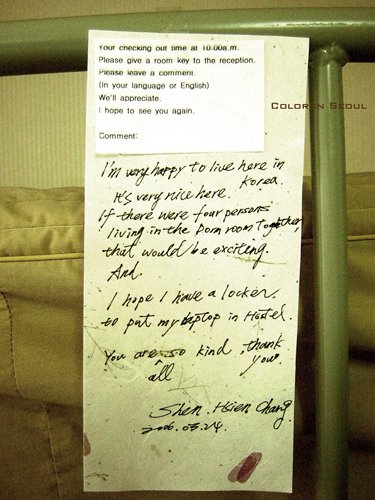 Your checking out time at 10:00a.m.
Please give a room key to the reception.
Please leave a comment.
(In your language or English)
We'll appreciate.
I hope to see you again.
Comment:
COLOR IN SEOUL
I'm very happy to live here in
Korea.
It's very nice here.
If there were four persons
living in the Dorm room together,
that would be exciting.
And
I hope I have a locker.
to put my laptop in Hostel.
You are so kind, thank
all you.
Shen. Hsien Chang.
2006.05.24.